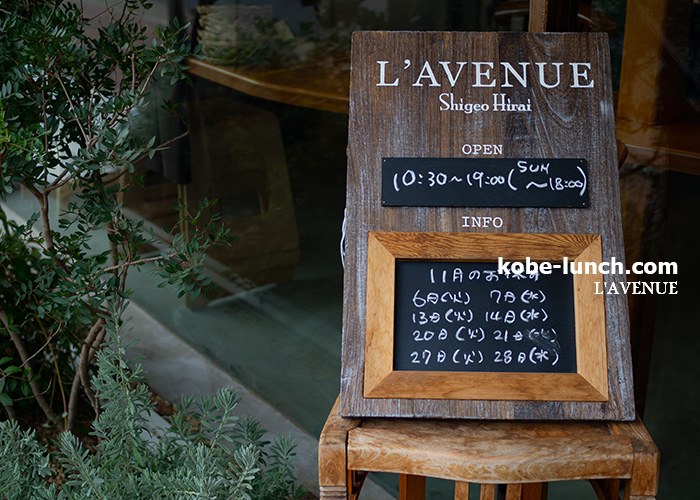 L'AVENUE
Shigeo Hirai
OPEN
10:30～19:00(SUN～18:00)
INFO
11月のお休み
6日(火) 7日(水)
13日(火) 14日(水)
20日(火) 21日(水)
27日(火) 28日(水)
kobe-lunch.com
L'AVENUE